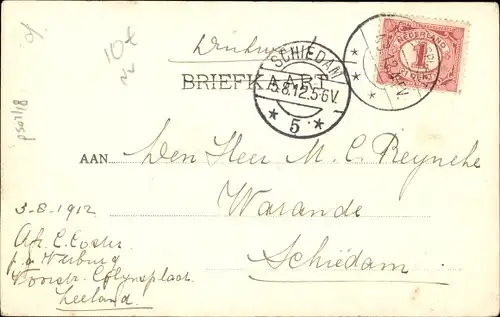 Drukwerk
BRIEFKAART
SCHIEDAM
5.8.12.5-6V.
* 5 *
NEDERLAND
1
CENT
AAN Den Heer M. C. Reyneke
Warande
Schiedam
3-8-1912
Afz. C. Coster
p/a Werburg
Voorstr. Colynsplaat
Zeeland
10x
ps07/18